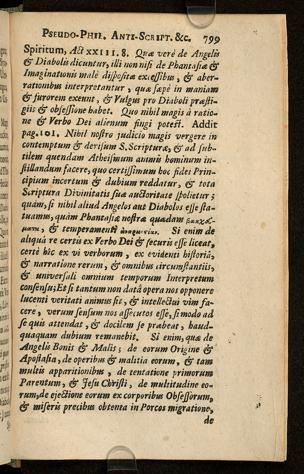 PSEUDO-PHIL. ANTI-SCRIPT. &c. 799
Spiritum, Act XXIII. 8. Quæ verè de Angelis
& Diabolis dicuntur, illi non nisi de Phantasiæ &
Imaginationis malè dispositæ excessibus, & aber-
rationibus interpretantur, quæ sæpè in maniam
& furorem exeunt, & Vulgus pro Diaboli præsti-
giis & obsessione habet. Quo nihil magis à ratio-
ne & Verbo Dei alienum fingi potest. Addit
pag. 101. Nihil nostro judicio magis vergere in
contemptum & derisum S. Scripturæ, & ad sub-
tilem quendam Atheismum animis hominum in-
stillandum facere, quo certissimum hoc fidei Prin-
cipium incertum & dubium reddatur, & tota
Scriptura Divinitatis suæ auctoritate spolietur;
quàm, si nihil aliud Angelos aut Diabolos esse sta-
tuamus, quàm Phantasiæ nostræ quædam
& temperamenti Si enim de
aliquâ re certis ex Verbo Dei & securis esse liceat,
certè hîc ex vi verborum, ex evidenti historiâ
& narratione rerum, & omnibus circumstantiis,
& universali omnium temporum Interpretum
consensu; Et si tantum non datâ operâ nos opponere
lucenti veritati animus sit, & intellectui vim fa-
cere, verum sensum nos assecutos esse, si modo ad
se quis attendat, & docilem se præbeat, haud-
quaquam dubium remanebit. Si enim, quæ de
Angelis Bonis & Malis; de eorum Origine &
Apostasia, de operibus & malitia eorum, & tam
multis apparitionibus, de tentatione primorum
Parentum, & Jesu Christi, de multitudine eo-
rum, de ejectione eorum ex corporibus Obsessorum,
& miseris precibus obtenta in Porcos migratione,
de